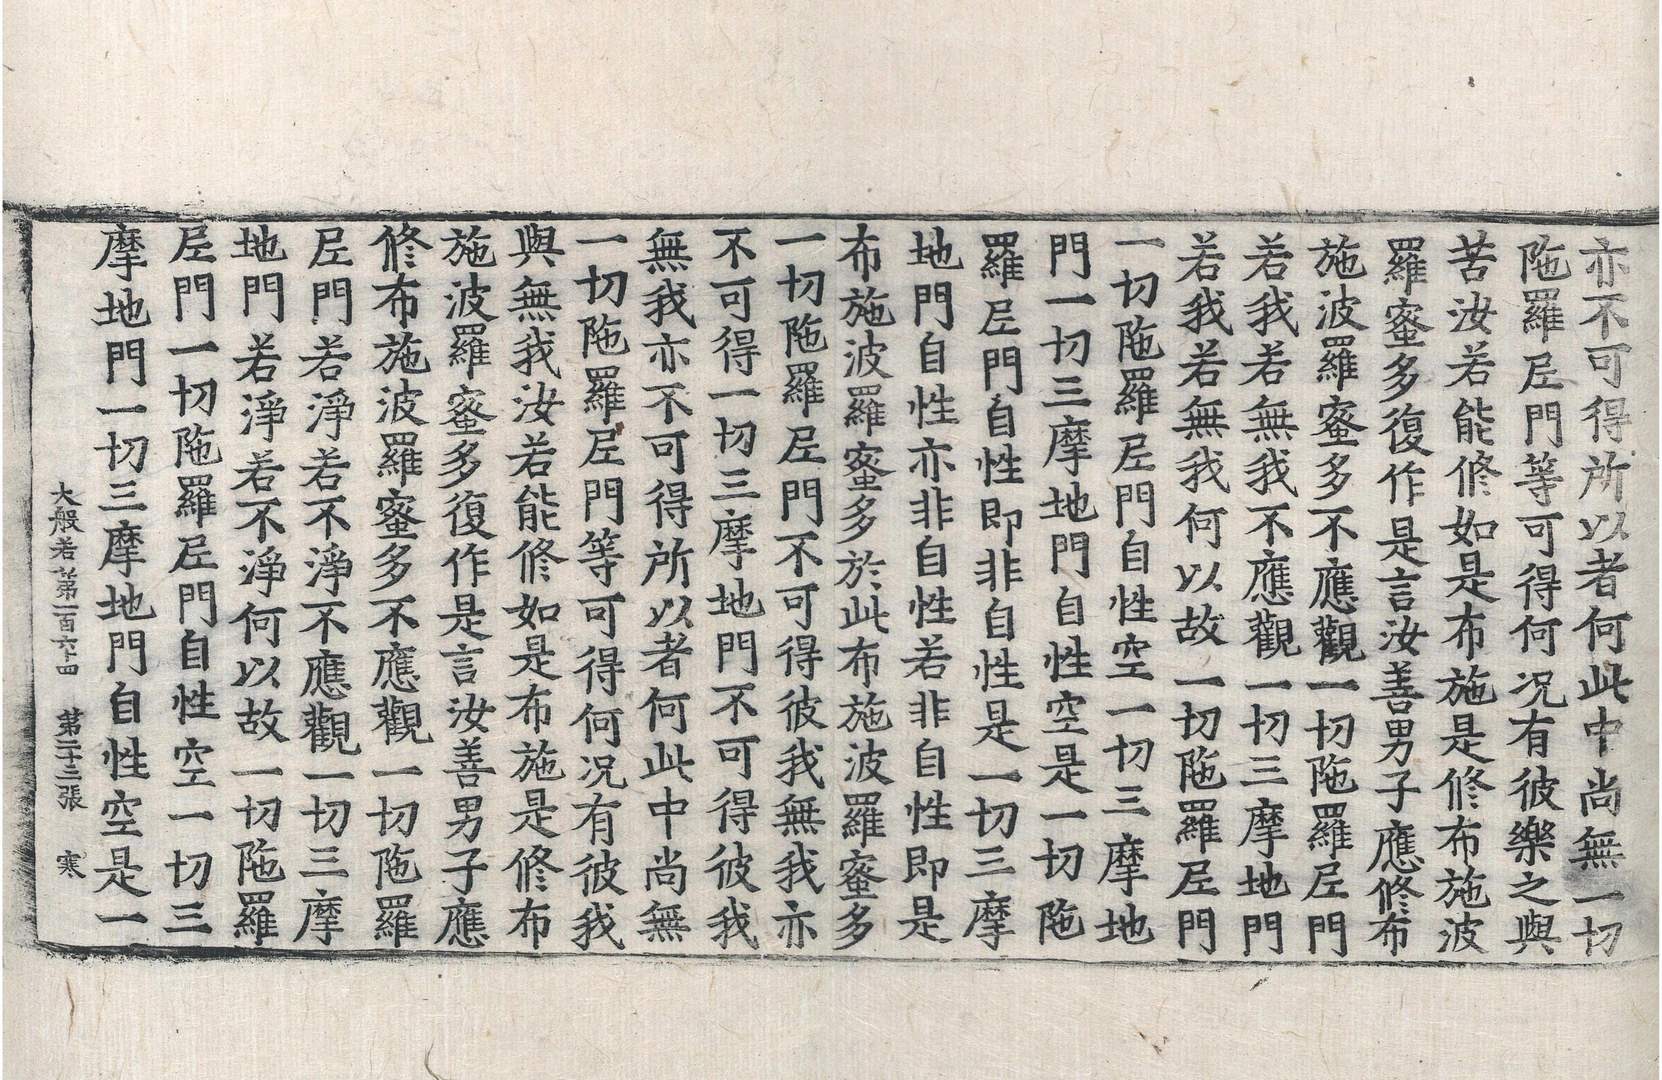 亦不可得所以者何此中尚無一切
陁羅尼門等可得何况有彼樂之與
苦汝若能修如是布施是修布施波
羅蜜多復作是言汝善男子應修布
施波羅蜜多不應觀一切陁羅尼門
若我若無我不應觀一切三摩地門
若我若無我何以故一切陁羅尼門
一切陁羅尼門自性空一切三摩地
門一切三摩地門自性空是一切陁
羅尼門自性即非自性是一切三摩
地門自性亦非自性若非自性即是
布施波羅蜜多於此布施波羅蜜多
一切陁羅尼門不可得彼我無我亦
不可得一切三摩地門不可得彼我
無我亦不可得所以者何此中尚無
一切陁羅尼門等可得何况有彼我
與無我汝若能修如是布施是修布
施波羅蜜多復作是言汝善男子應
修布施波羅蜜多不應觀一切陁羅
尼門若淨若不淨不應觀一切三摩
地門若淨若不淨何以故一切陁羅
尼門一切陁羅尼門自性空一切三
摩地門一切三摩地門自性空是一
大般若第一百六十四 第二十三張 寒